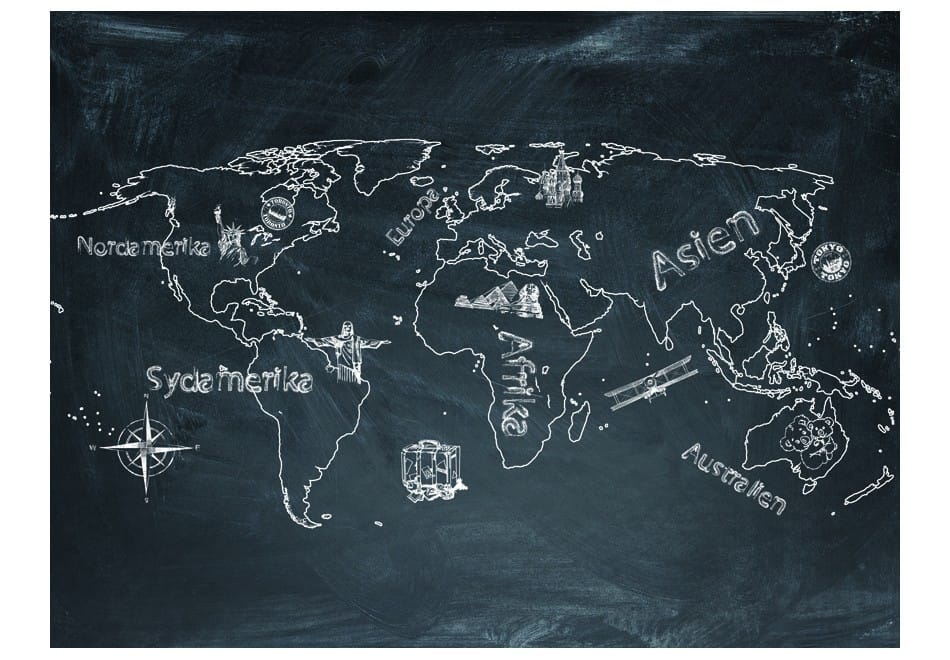 Europa
TORONTO
TORONTO
Nordamerika
Asien
TOKYO
TOKYO
Afrika
Sydamerika
N
W
E
S
Australien